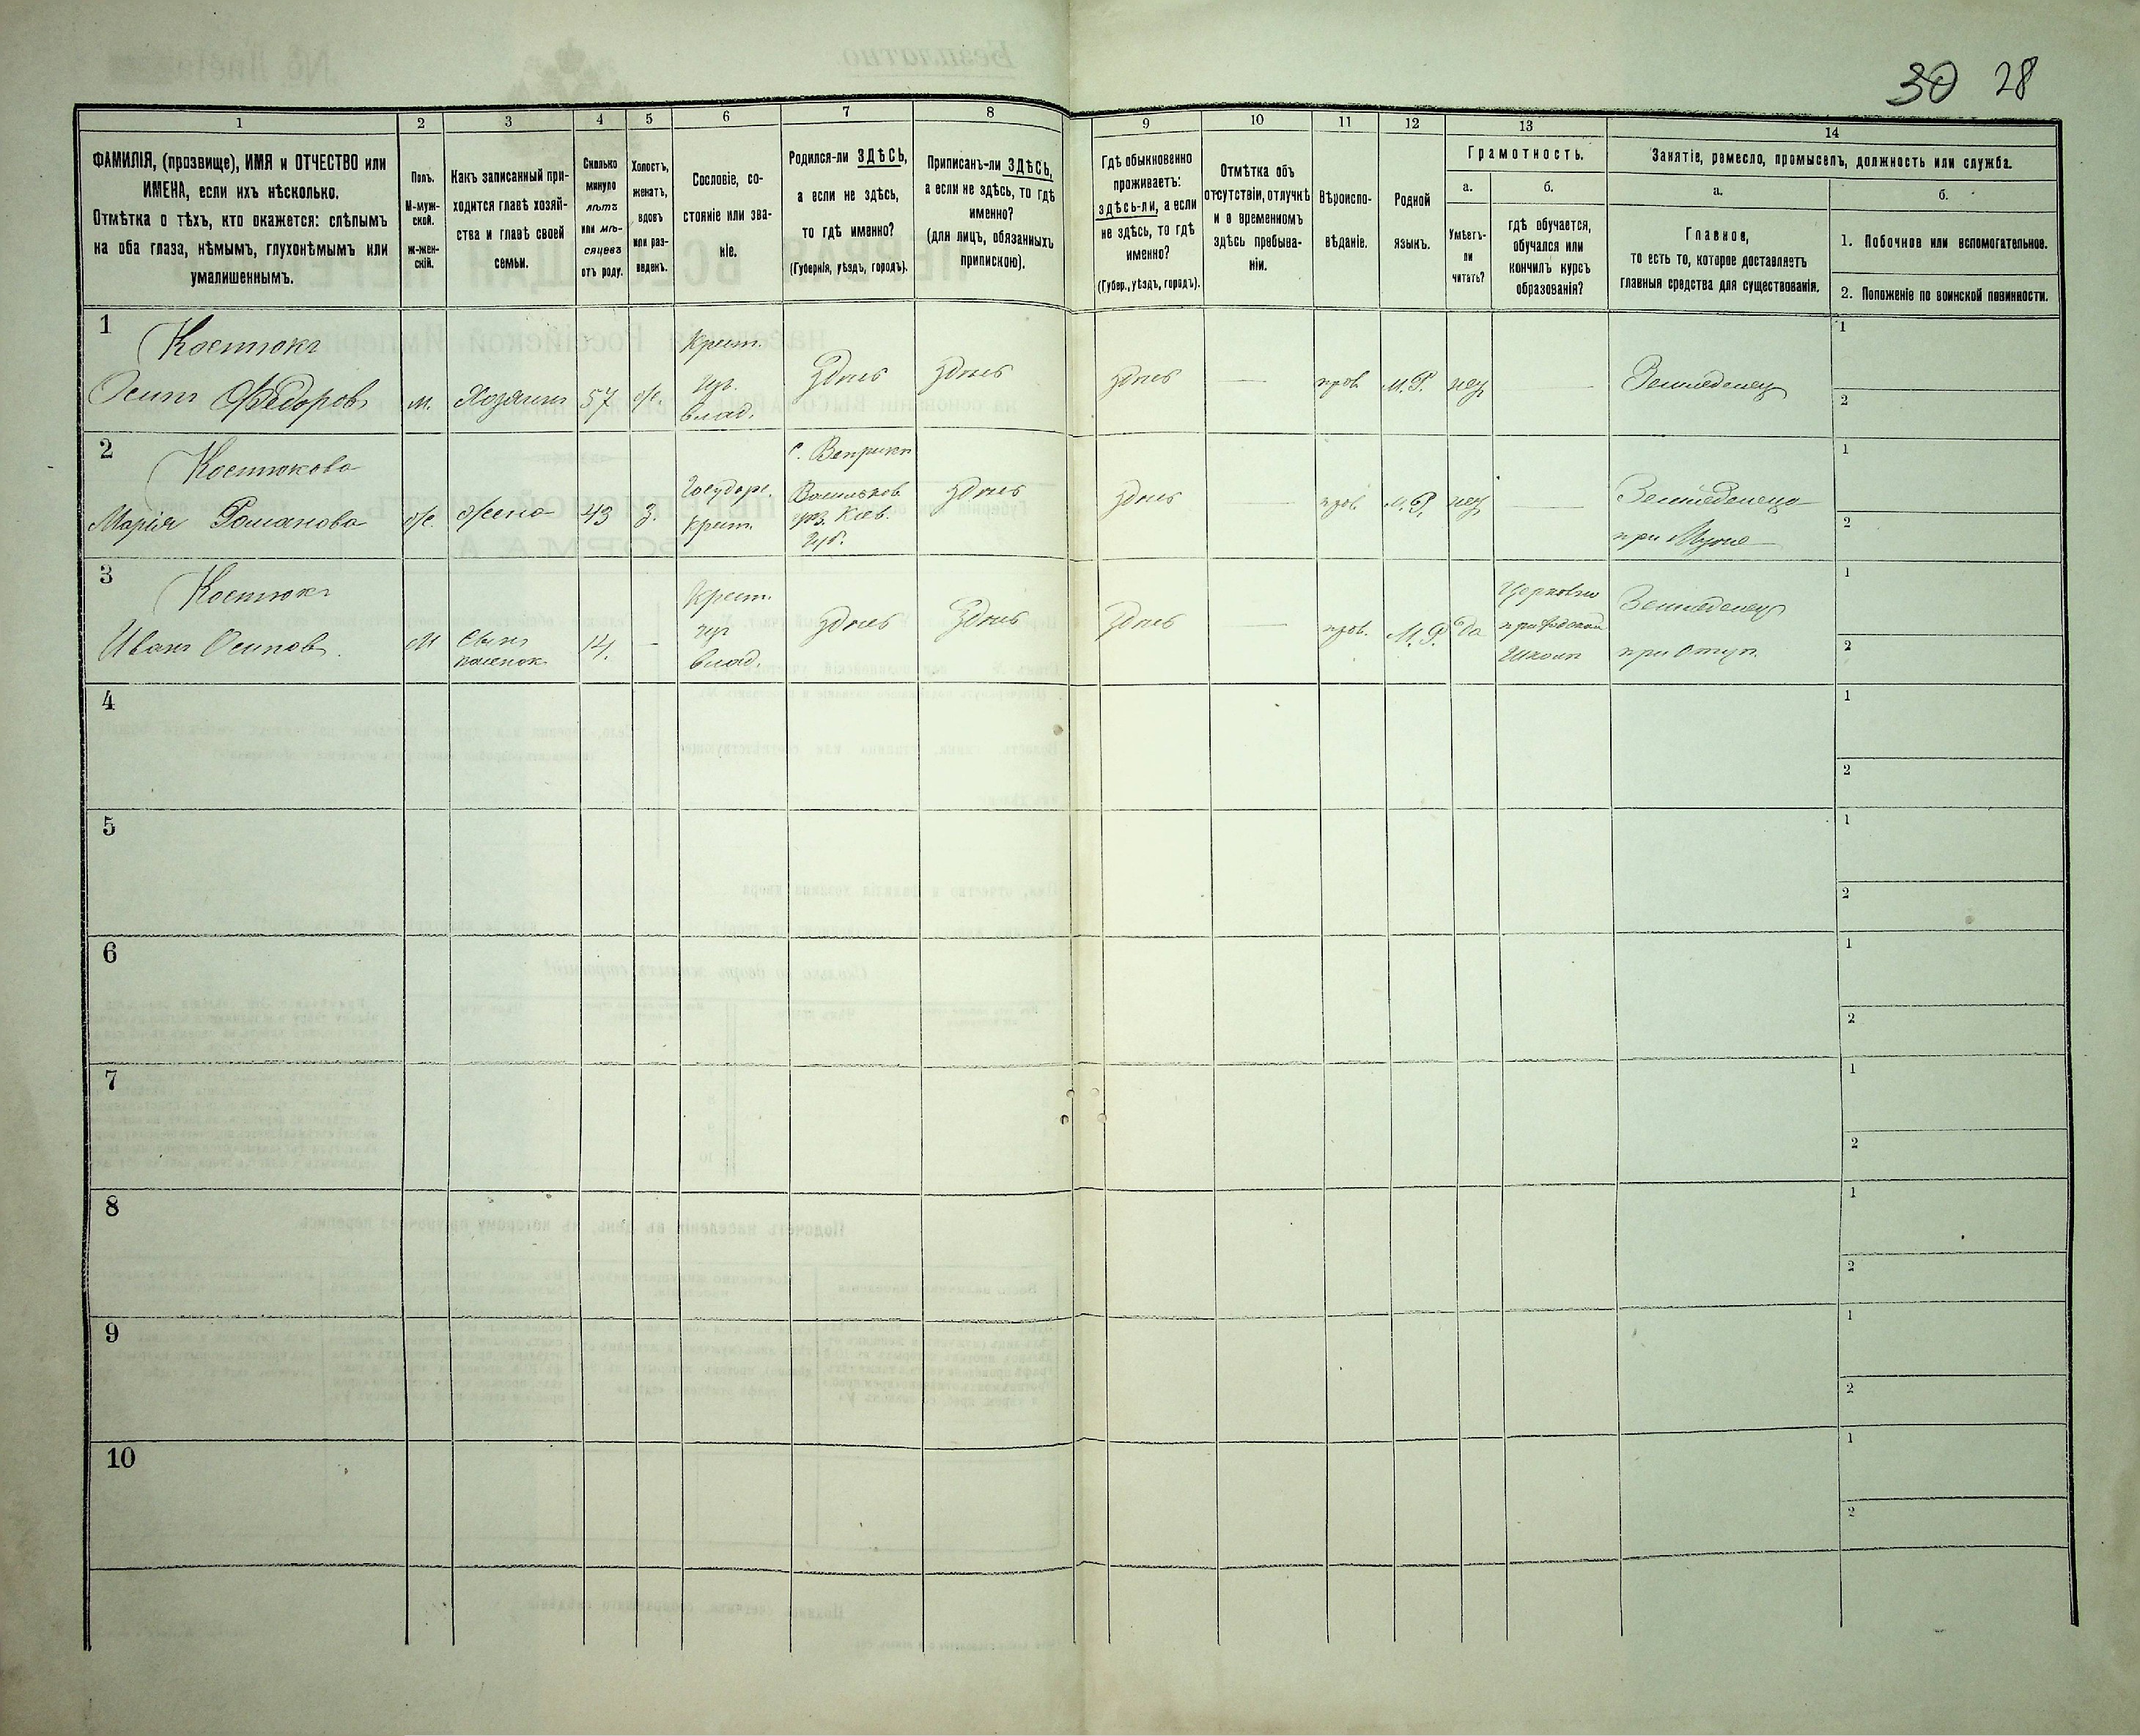 30 28
1 2 3 4 5 6 7 8 9 10 11 12 13 14
ФАМИЛІЯ, (прозвище), ИМЯ и ОТЧЕСТВО или
ИМЕНА, если ихъ нѣсколько.
Отмѣтка о тѣхъ, кто окажется: слѣпымъ
на оба глаза, нѣмымъ, глухонѣмымъ или
умалишеннымъ.
Полъ.
М-муж-
ской.
Ж-жен-
скій.
Какъ записанный при-
ходится главѣ хозяй-
ства и главѣ своей
семьи.
Сколько
минуло
лѣтъ
или мѣ-
сяцевъ
отъ роду.
Холостъ,
женатъ,
вдовъ
или раз-
веденъ.
Сословіе, со-
стояніе или зва-
ніе.
Родился-ли ЗДѢСЬ,
а если не здѣсь,
то гдѣ именно?
(Губернія, уѣздъ, городъ).
Приписанъ-ли ЗДѢСЬ,
а если не здѣсь, то гдѣ
именно?
(для лицъ, обязанныхъ
припискою).
Гдѣ обыкновенно
проживаетъ:
здѣсь-ли, а если
не здѣсь, то гдѣ
именно?
(Губер., уѣздъ, городъ).
Отмѣтка объ
отсутствіи, отлучкѣ
и о временномъ
здѣсь пребыва-
ніи.
Вѣроиспо-
вѣданіе.
Родной
языкъ.
Грамотность.
а.
Умѣетъ-
ли
читать?
б.
гдѣ обучается,
обучался или
кончилъ курсъ
образованія?
Занятіе, ремесло, промыселъ, должность или служба.
а.
Главное,
то есть то, которое доставляетъ
главныя средства для существованія.
б.
1. Побочное или вспомогательное.
2. Положеніе по воинской повинности.
1
Костюкъ
Осипъ Ѳедоровъ
м.
Хозяинъ
57
ж.
Крест.
изъ
влад.
Здѣсь
Здѣсь
Здѣсь
—
прав.
М.Р.
нѣтъ
—
Земледѣлецъ
1
2
2
Костюкова
Марія Романова
ж.
жена
43
з.
Государ.
крест.
с. Веприкъ
Васильков.
уѣз. Кіев.
Губ.
Здѣсь
Здѣсь
—
прав.
М.Р.
нѣтъ
—
Земледѣлецъ
при мужѣ
1
2
3
Костюкъ
Иванъ Осиповъ.
М
Сынъ
14.
-
крест.
изъ
влад.
Здѣсь
Здѣсь
Здѣсь
—
прав.
М.Р.
да
Церковно
приходской
Школѣ
Земледѣлецъ
при отцѣ.
1
2
4
1
2
5
1
2
6
1
2
7
1
2
8
1
2
9
1
2
10
1
2